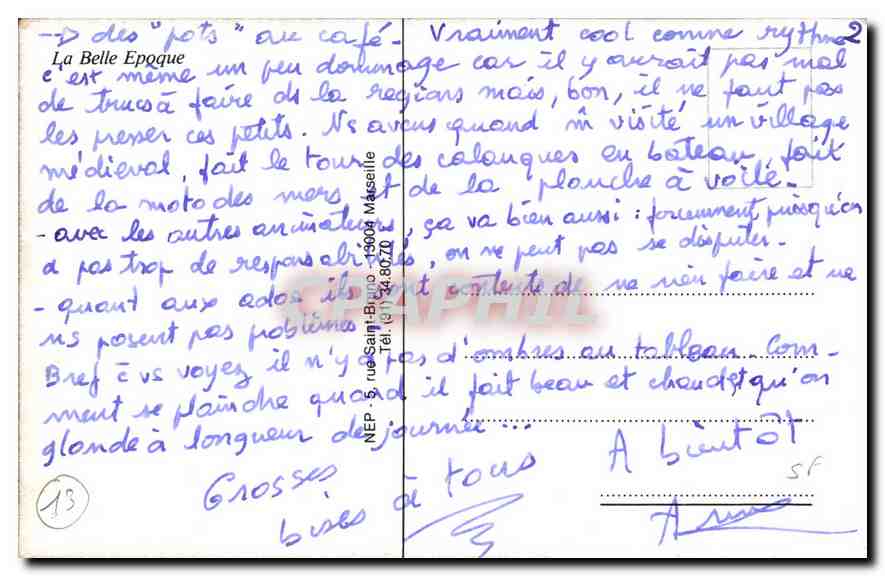 --> des "pots" au café - Vraiment cool comme rythme 2
La Belle Epoque
c'est même un peu dommage car il y aurait pas mal
de trucs à faire ds la région mais, bon, il ne faut pas
les presser ces petits. Ns avons quand m̂ visité un village
médiéval, fait le tour des calanques en bateau, fait
de la moto des mers et de la planche à voile -
- avec les autres animateurs, ça va bien aussi : forcemment puisqu'on
a pas trop de responsabilités, on ne peut pas se disputer -
- quant aux ados ils sont contents de ne rien faire et ne
ns posent pas problèmes -
Bref c̄ vs voyez il n'y a pas d'ombres au tableau. Com-
ment se plaindre quand il fait beau et chaud et qu'on
glande à longueur de journée ...
A bientôt
Grosses
bises à tous
Anne
SF
13
NEP - 5, rue Saint-Bruno - 13004 Marseille
Tél. (91) 34.80.70
CPAPHIL